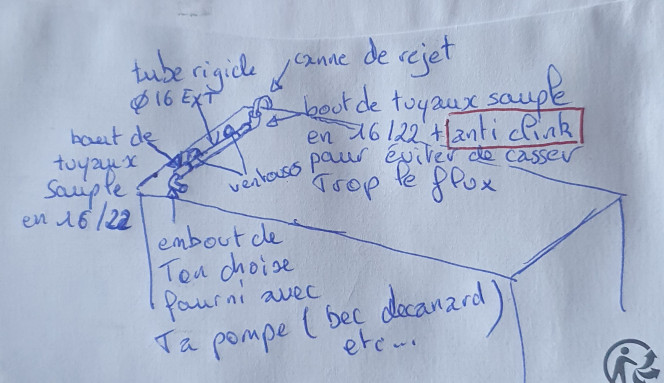 canne de rejet
tube rigide
Ø 16 EXT
bout de tuyaux souple
en 16/22 + anti clink
pour éviter de casser
Trop le flux
bout de
tuyaux
souple
en 16/22
ventouses
embout de
Ton choise
fourni avec
Ta pompe (bec decanard)
etc...